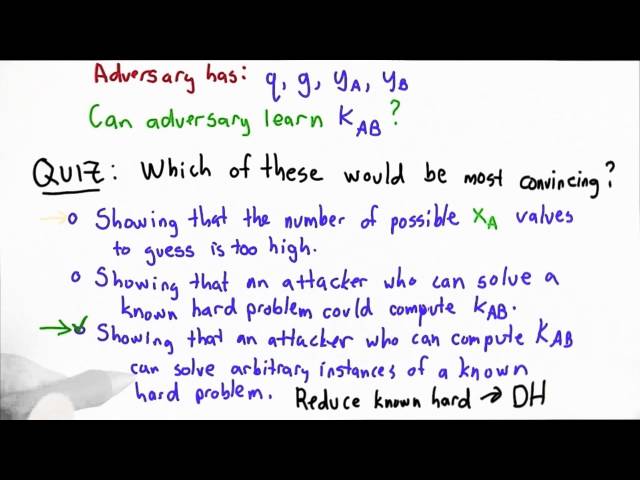 Adversary has: q, g, yA, yB
Can adversary learn KAB?
QUIZ: Which of these would be most convincing?
Showing that the number of possible XA values
to guess is too high.
Showing that an attacker who can solve a
known hard problem could compute KAB.
Showing that an attacker who can compute KAB
can solve arbitrary instances of a known
hard problem. Reduce known hard → DH